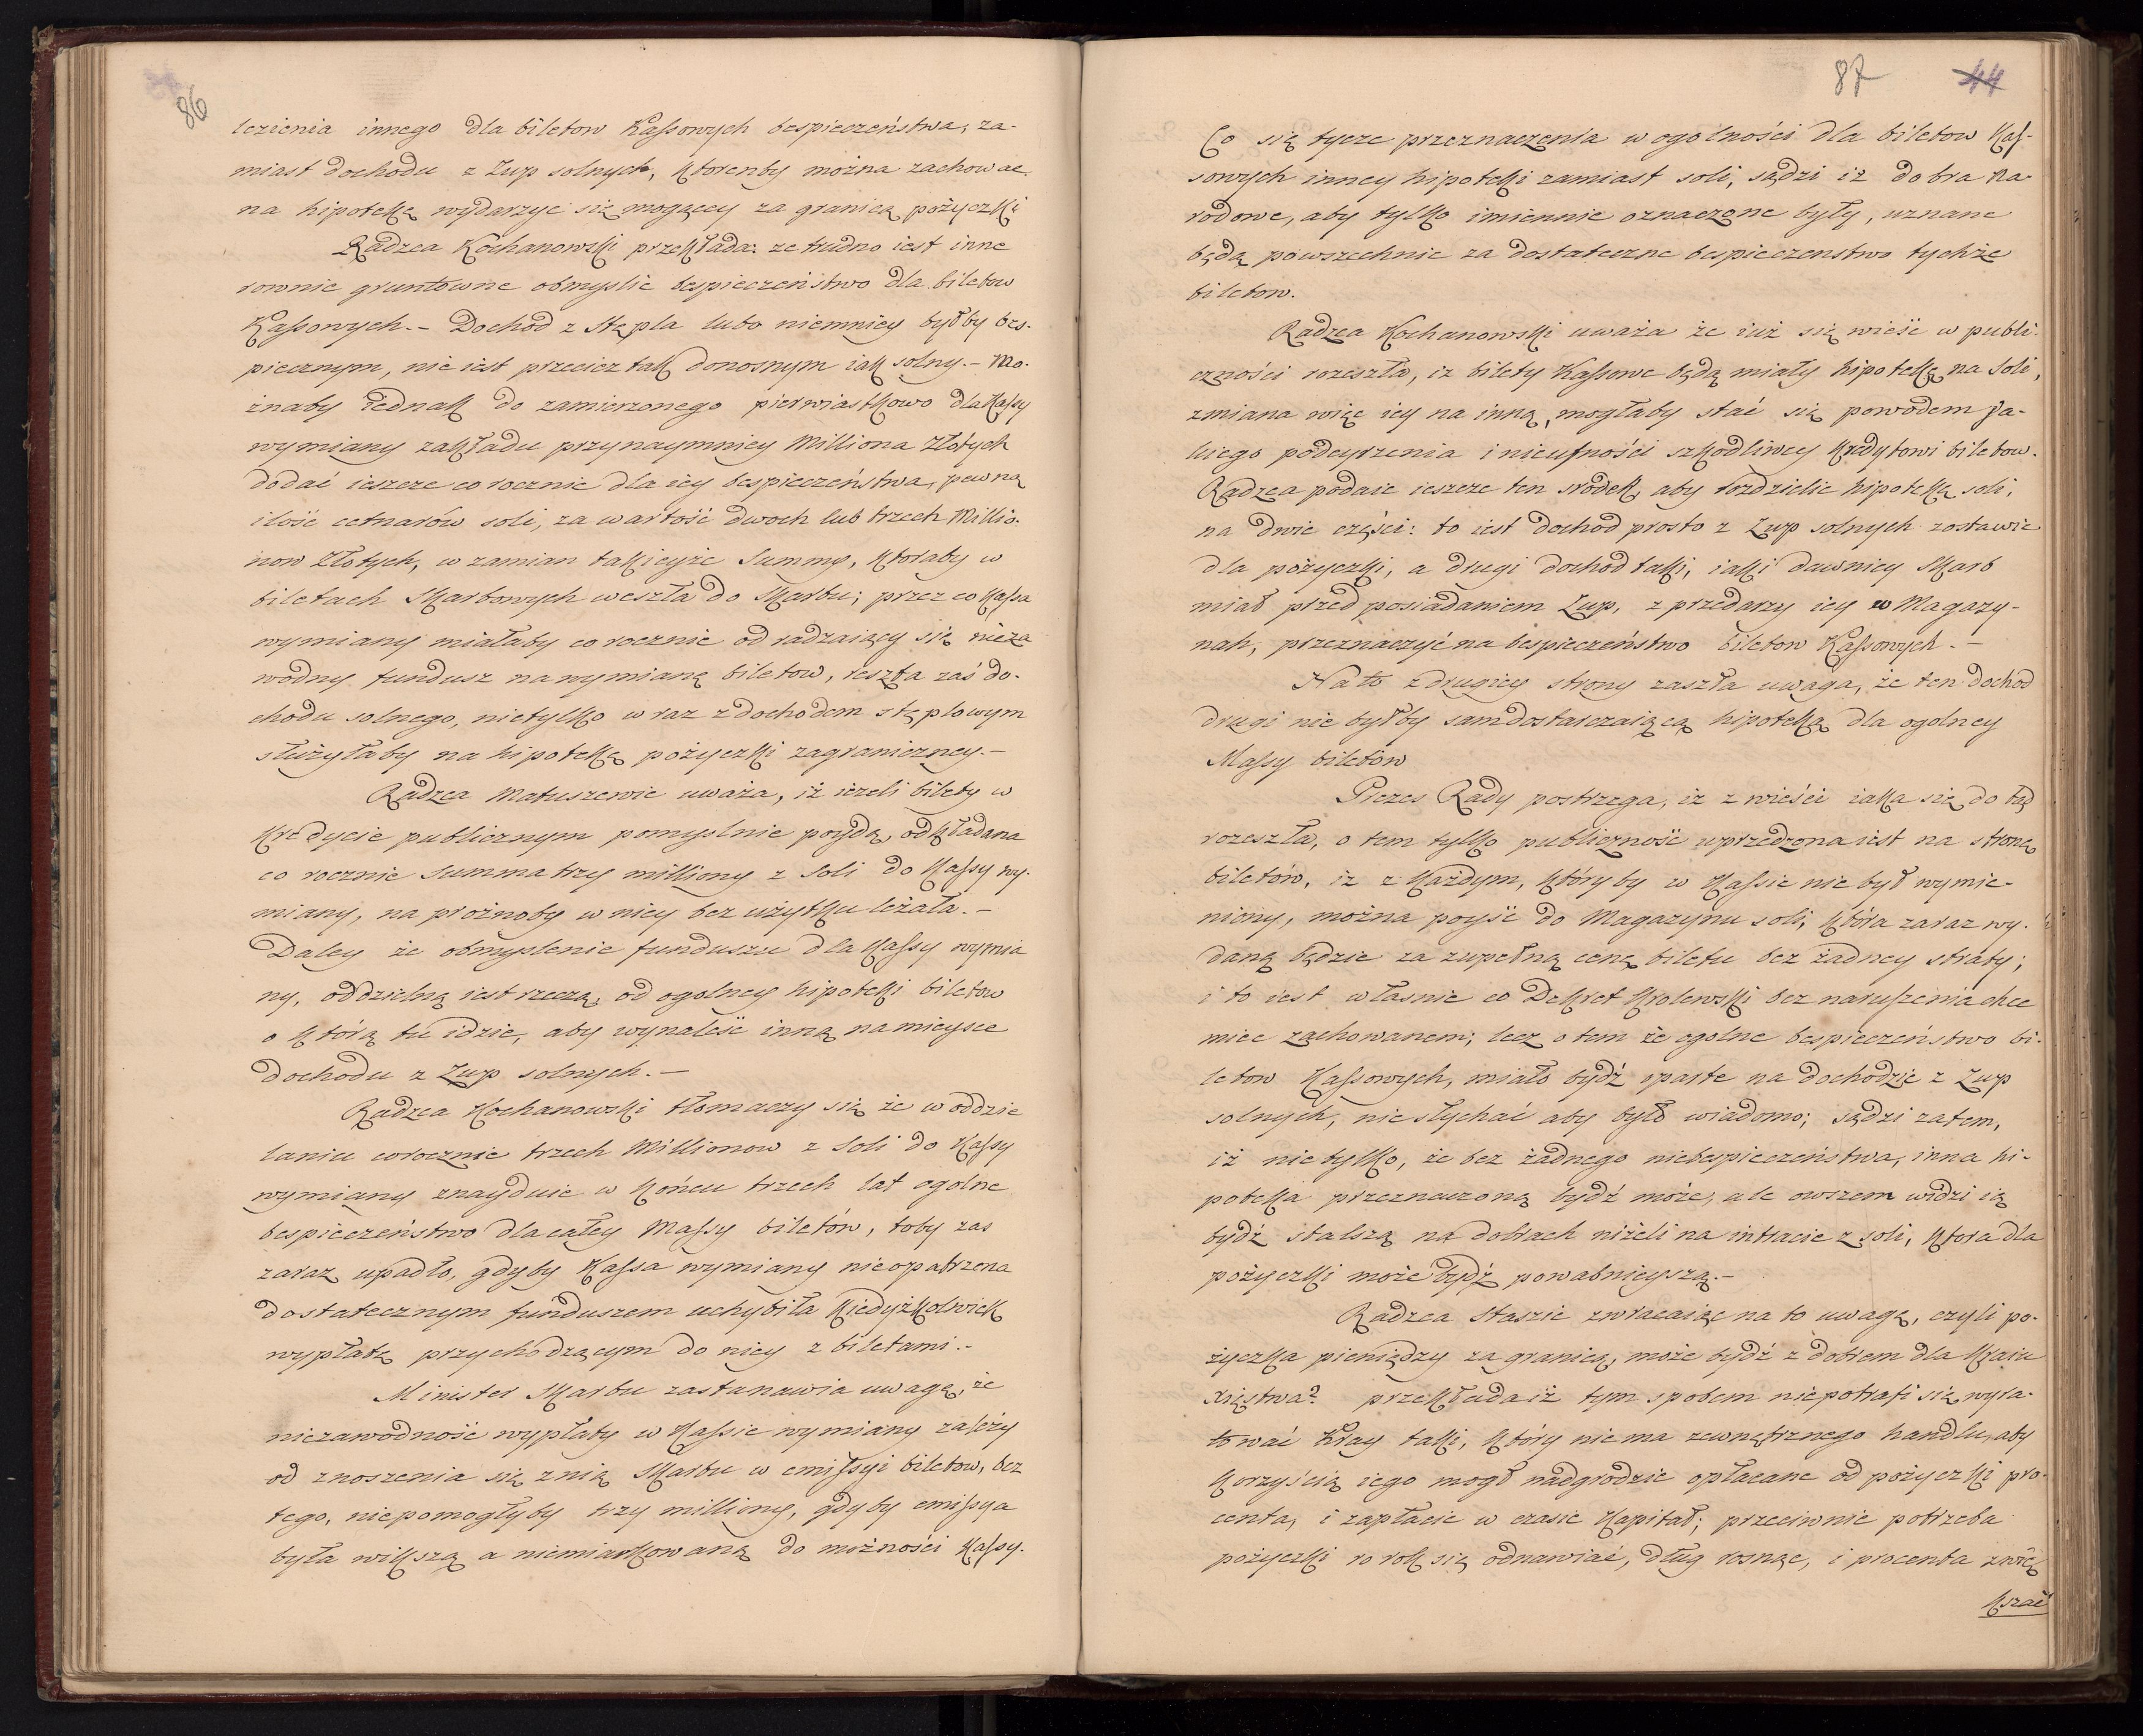 86
lezienia innego dla biletow Kassowych bespieczeństwa, za-
miast dochodu z Zup solnych, ktorenby można zachowac
na hipotekę wydarzyc się mogącey za granicą pożyczki
Radzca Kochanowski przekłada: ze trudno iest inne
rownie gruntowne obmyslic bespieczeństwo dla biletow
Kassowych. – Dochod z Stępla lubo niemniey byłby bes-
piecznym, nie iest przecież tak donosnym iak solny. – Mo-
żnaby iednak do zamierzonego pierwiastkowo dla Kassy
wymiany zakładu przynaymniey Milliona Złotych
dodać ieszcze corocznie dla iey bespieczeństwa, pewną
ilość cetnarów soli, za wartość dwoch lub trzech Millio-
now Złotych, w zamian takieyże Summy, ktoraby w
biletach Skarbowych weszła do Skarbu; przez co Kassa
wymiany miałaby corocznie odradzaiący się nieza
wodny fundusz na wymianę biletow, reszta zaś do-
chodu solnego, nietylko wraz z dochodem stęplowym
służyłaby na hipotekę pożyczki zagraniczney. –
Radzca Matuszewic uważa, iż ieżeli bilety w
Kredycie publicznym pomyslnie poydą, odkładana
co rocznie Summa trzy milliony z Soli do Kassy wy-
miany, na prożnoby w niey bez użytku leżała. –
Daley że obmyslenie funduszu dla Kassy wymia
ny, oddzielną iest rzeczą, od ogolney hipoteki biletow
o którą tu idzie, aby wynaleść inną na mieysce
dochodu z Zup solnych. –
Radzca Kochanowski tłomaczy się że w oddzie
laniu corocznie trzech Millionow z Soli do Kassy
wymiany znayduie w Końcu trzech lat ogolne
bespieczeństwo dla całey Massy biletów, toby zas
zaraz upadło, gdyby Kassa wymiany nieopatrzona
dostatecznym funduszem uchybiła Kiedyżkolwiek
wypłatę przychodzącym do niey z biletami. –
Minister Skarbu zastanawia uwagę, że
niezawodność wypłaty w Kassie wymiany zależy
od znoszenia się z nią Skarbu w emissyi biletow, bez
tego, niepomogłyby trzy milliony, gdyby emissya
była wikszą a niemiarkowaną do możności Kassy.
87 44
Co się tycze przeznaczenia w ogolności dla biletow Kas-
sowych inney hipoteki zamiast soli, sądzi iż dobra Na-
rodowe, aby tylko imiennie oznaczone były, uznane
będą powszechnie za dostateczne bespieczenstwo tychże
biletow.
Radzca Kochanowski uważa że iuż się wieść w publi-
czności rozeszła, iz bilety Kassowe będą miały hipotekę na Soli,
zmiana więc iey na inną, mogłaby stać się powodem ja-
kiego podeyrzenia i nieufności szkodliwey Kredytowi biletow.
Radzca podaie ieszcze ten srodek, aby rozdzielic hipotekę soli,
na dwie części: to iest dochod prosto z Zup solnych zostawic
dla pożyczki, a drugi dochod taki, iaki dawniey Skarb
miał przed posiadaniem Zup, z przedarzy iey w Magazy-
nah, przeznaczyć na bespieczeństwo biletow Kassowych. –
Na to z drugiey strony zaszła uwaga, że ten dochod
drugi nie byłby samdostarczaiącą hipoteką dla ogolney
Massy biletów
Prezes Rady postrzega, iż z wieści iaka się dotąd
rozeszła, o tem tylko publiczność uprzedzona iest na stronę
biletów, iż z Każdym, któryby w Kassie nie był wymie-
niony, można poyść do Magazynu soli, która zaraz wy-
daną będzie za zupełną cenę biletu bez żadney straty;
i to iest własnie co Dekret Krolewski bez naruszenia chce
miec zachowanem; lecz o tem że ogolne bespieczeństwo bi-
letow Kassowych, miało bydź oparte na dochodzie z Zup
solnych, niesłychać aby było wiadomo; sądzi zatem,
iż nietylko, że bez żadnego niebespieczeństwa, inna hi-
poteka przeznaczoną bydź może, ale owszem widzi ią
bydź stalszą na dobrach niżeli na intracie z soli, ktora dla
pożyczki może bydź powabnieyszą. –
Radzca Staszic zwracaiąc na to uwagę, czyli po-
życzka pieniędzy za granicą, może bydź z dobrem dla Kraiu
Xięstwa? przekłada iż tym spobem niepotrafi się wyra-
tować Kray taki, który niema zewnętrznego handlu, aby
Korzyścią iego mogł nadgrodzic opłacane od pożyczki pro-
centa, i zapłacic w czasie Kapitał; przeciwnie potrzeba
pożyczki ro rok się odnawiać, dług rosnąc, i procenta zwię
kszać